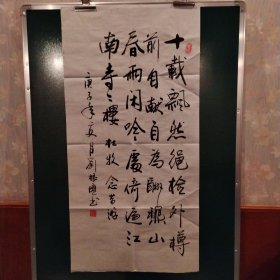 十載飄然繩檢外樽
前自獻自為酬歌山
春雨闲吟處倚遍江
南寺寺樓 杜牧 念昔游
庚子年夏月劉